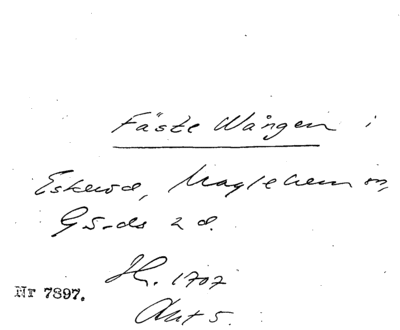 Fäste Wången i
Eskeröd, Maglehem sn,
Gärds 2 d.
H. 1707
Akt 5.
Nr 7897.